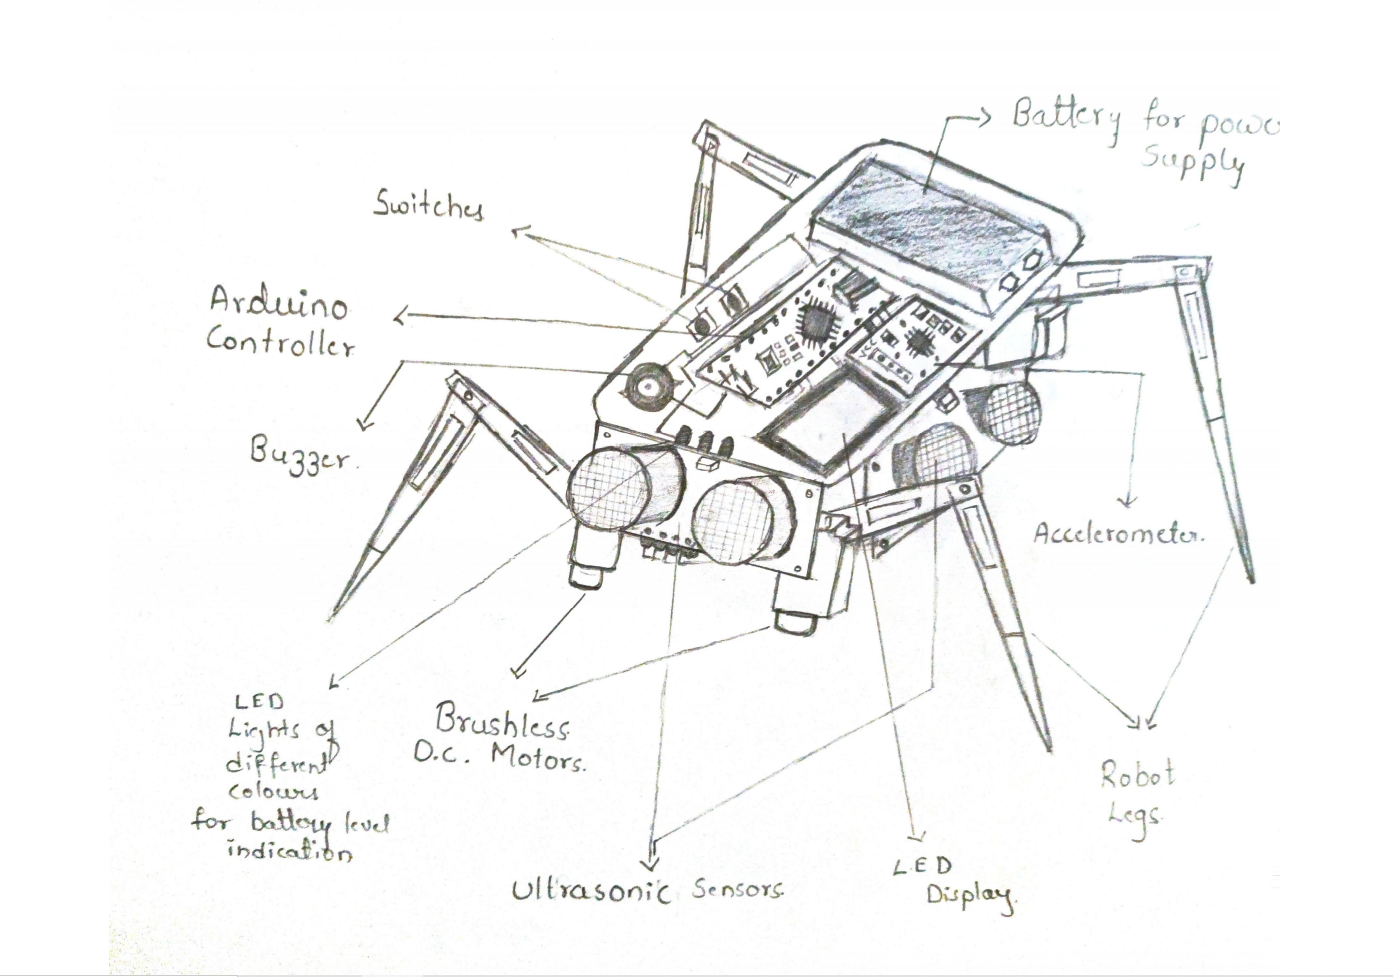 Battery for powe
Supply
Switches
Arduino
Controller
Buzzer.
Accelerometer.
LED
Lights of
different
colours
for battery level
indication
Brushless
D.C. Motors.
Robot
Legs.
Ultrasonic Sensors.
LED
Display.